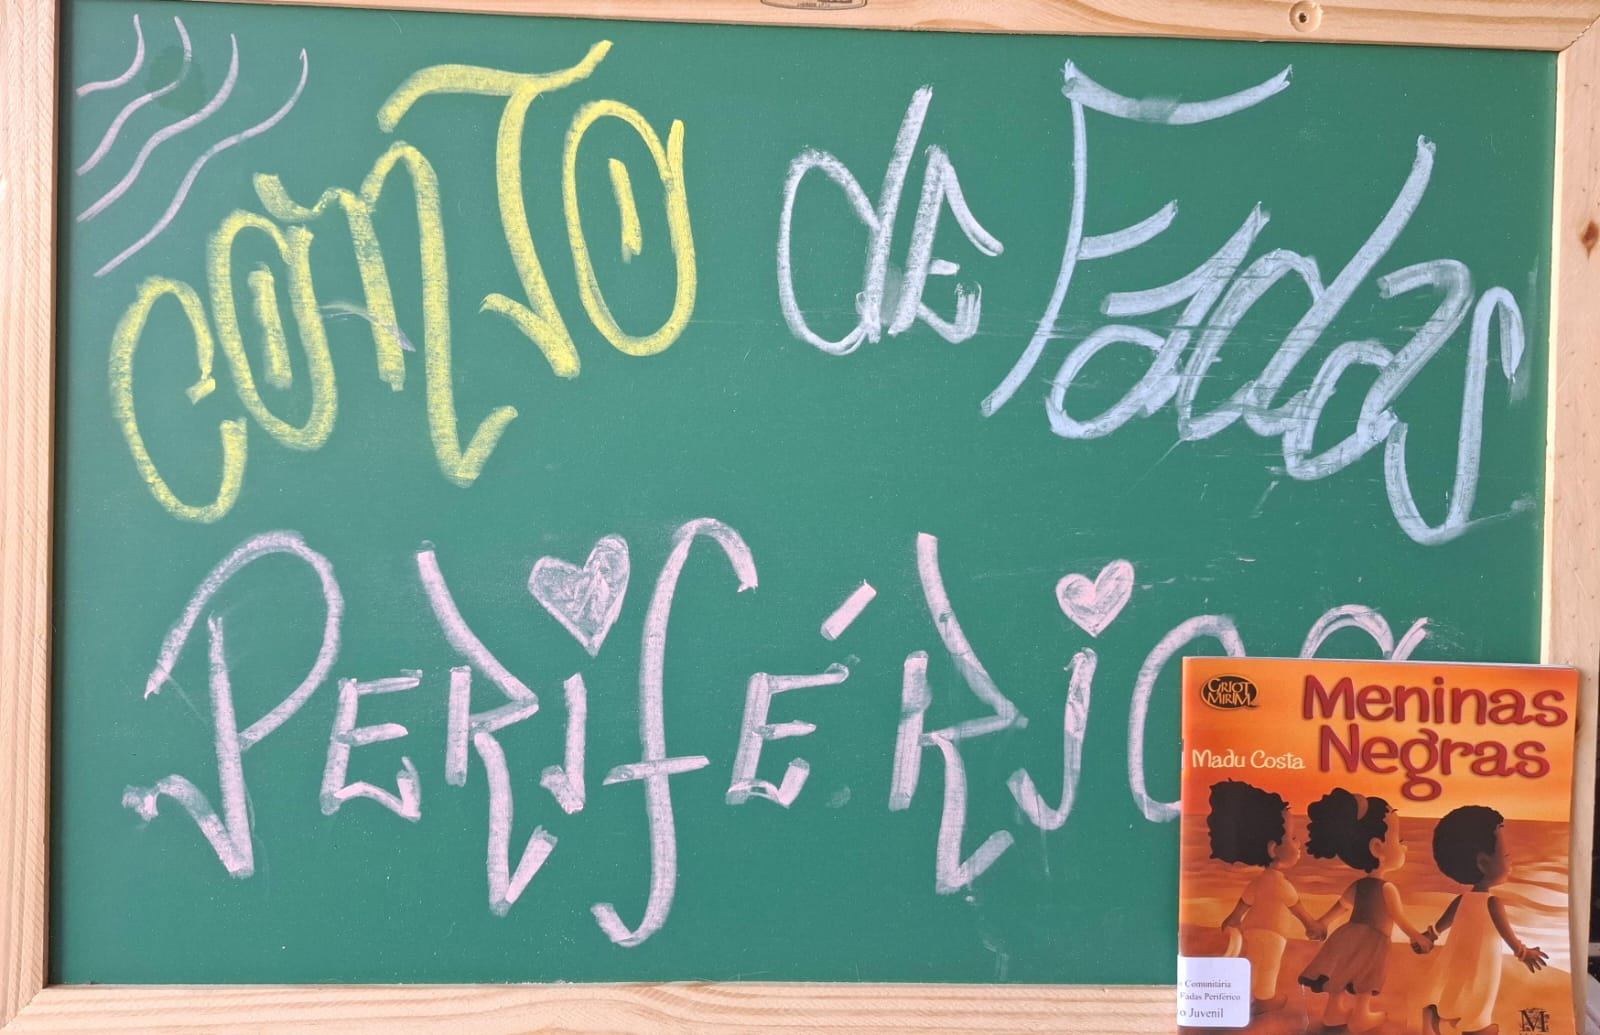 Conto de Fadas
Periférico
GRIOT
MIRIM
Meninas
Negras
Madu Costa
Comunitária
Fadas Periférico
o Juvenil
M